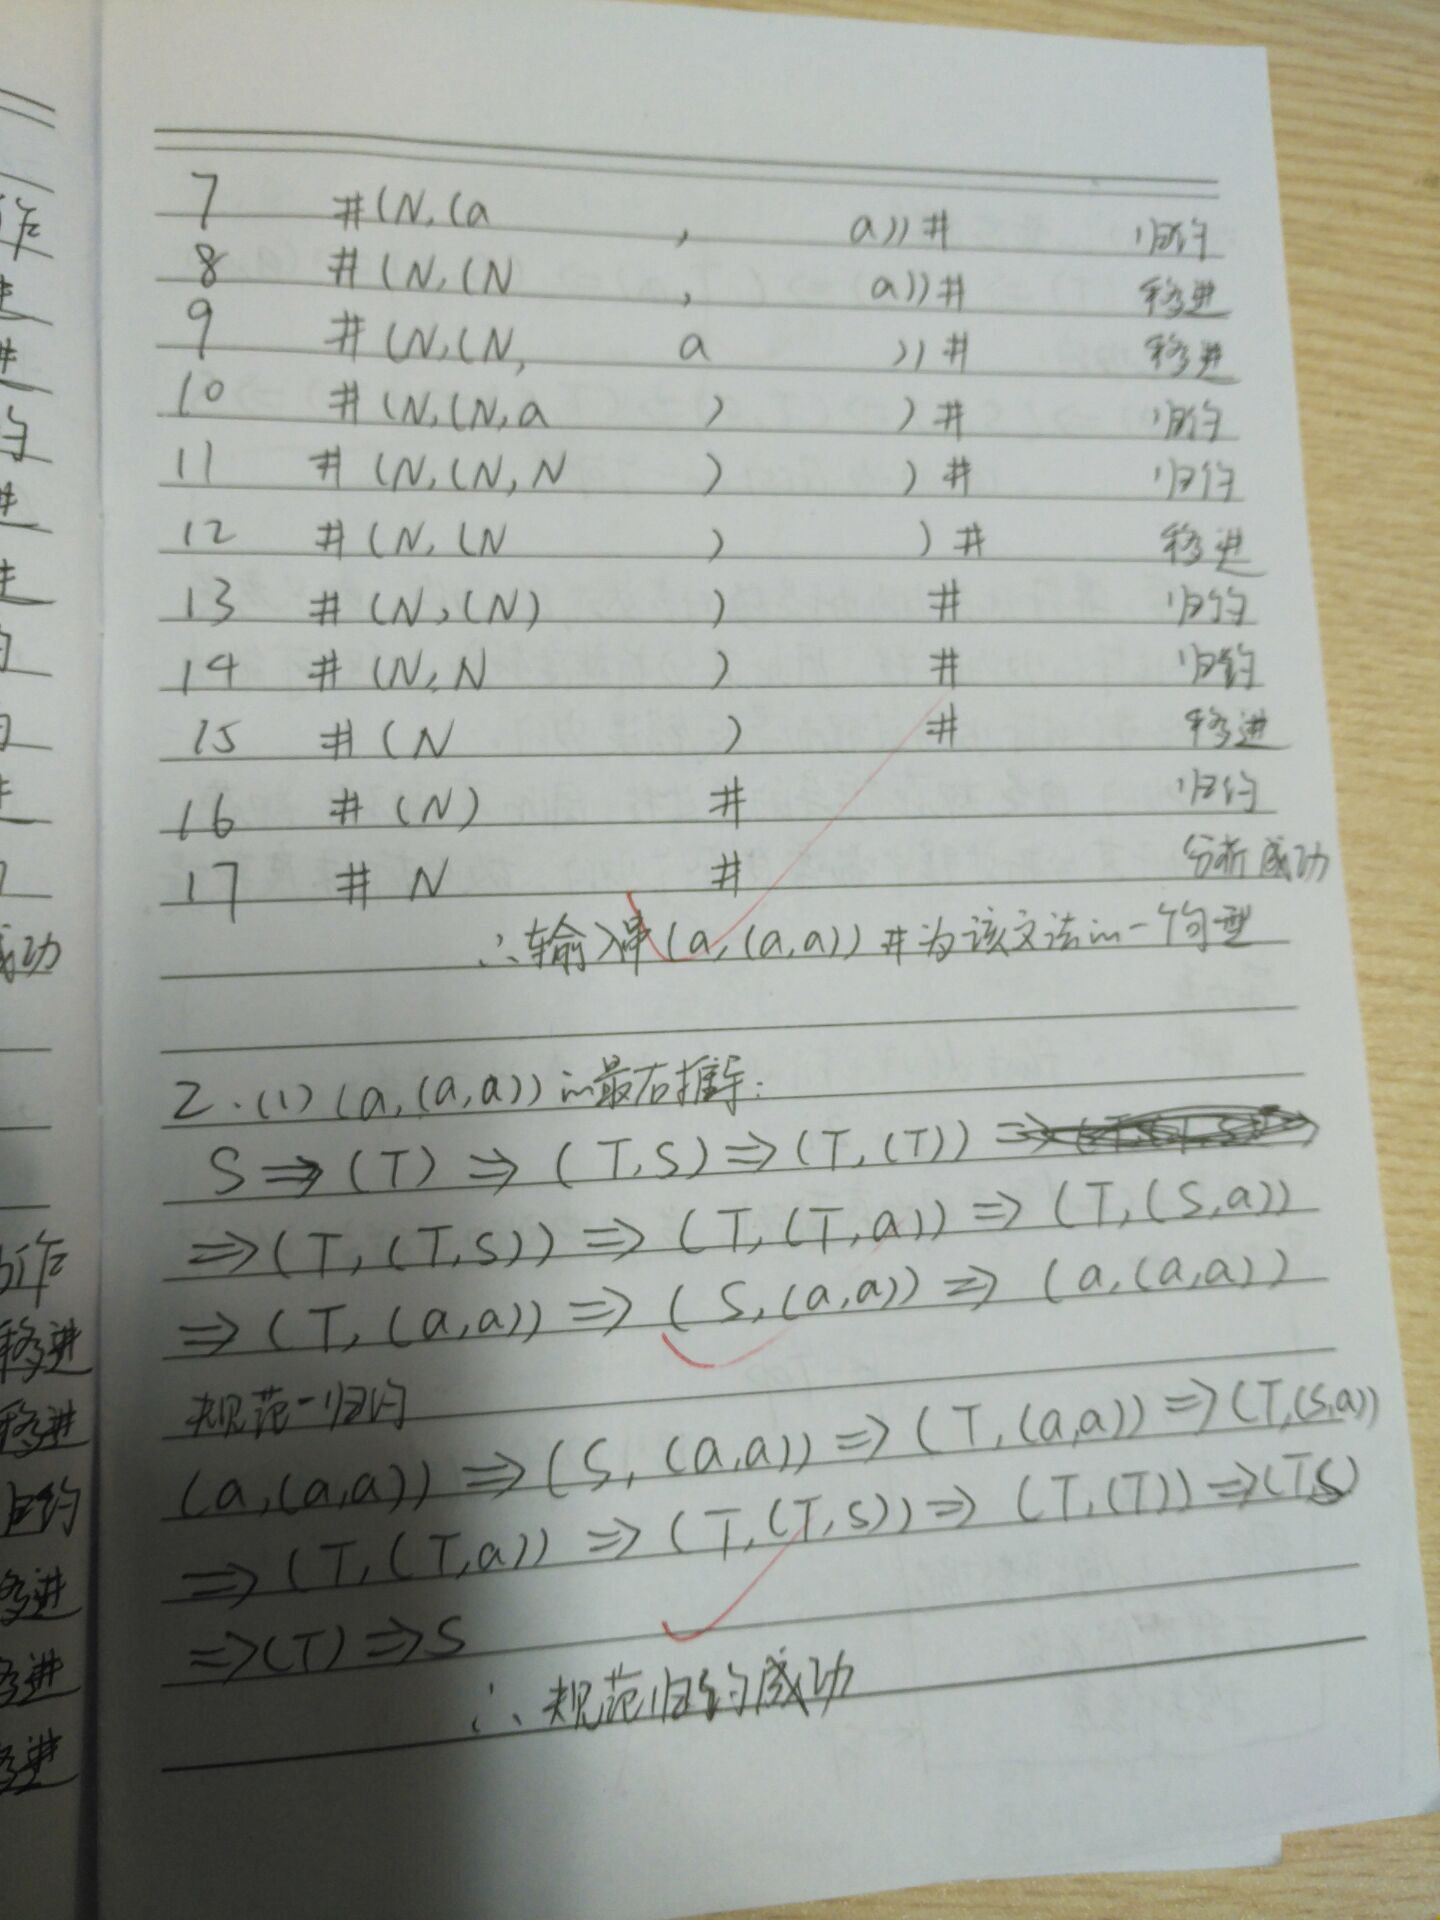 7 #(N,(a , a))# 归约
8 #(N,(N , a))# 移进
9 #(N,(N, a ))# 移进
10 #(N,(N,a ) )# 归约
11 #(N,(N,N ) )# 归约
12 #(N,(N ) )# 移进
13 #(N,(N) ) # 归约
14 #(N,N ) # 归约
15 #(N ) # 移进
16 #(N) # 归约
17 #N # 分析成功
∴输入串(a,(a,a))#为该文法的一个句型
2.(1)(a,(a,a))的最右推导:
S⇒(T)⇒(T,S)⇒(T,(T))
⇒(T,(T,S))⇒(T,(T,a))⇒(T,(S,a))
⇒(T,(a,a))⇒(S,(a,a))⇒(a,(a,a))
规范归约
(a,(a,a))⇒(S,(a,a))⇒(T,(a,a))⇒(T,(S,a))
⇒(T,(T,a))⇒(T,(T,S))⇒(T,(T))⇒(T,S)
⇒(T)⇒S
∴规范归约成功
作
进
进
约
进
成功
动作
移进
移进
归约
移进
移进
移进